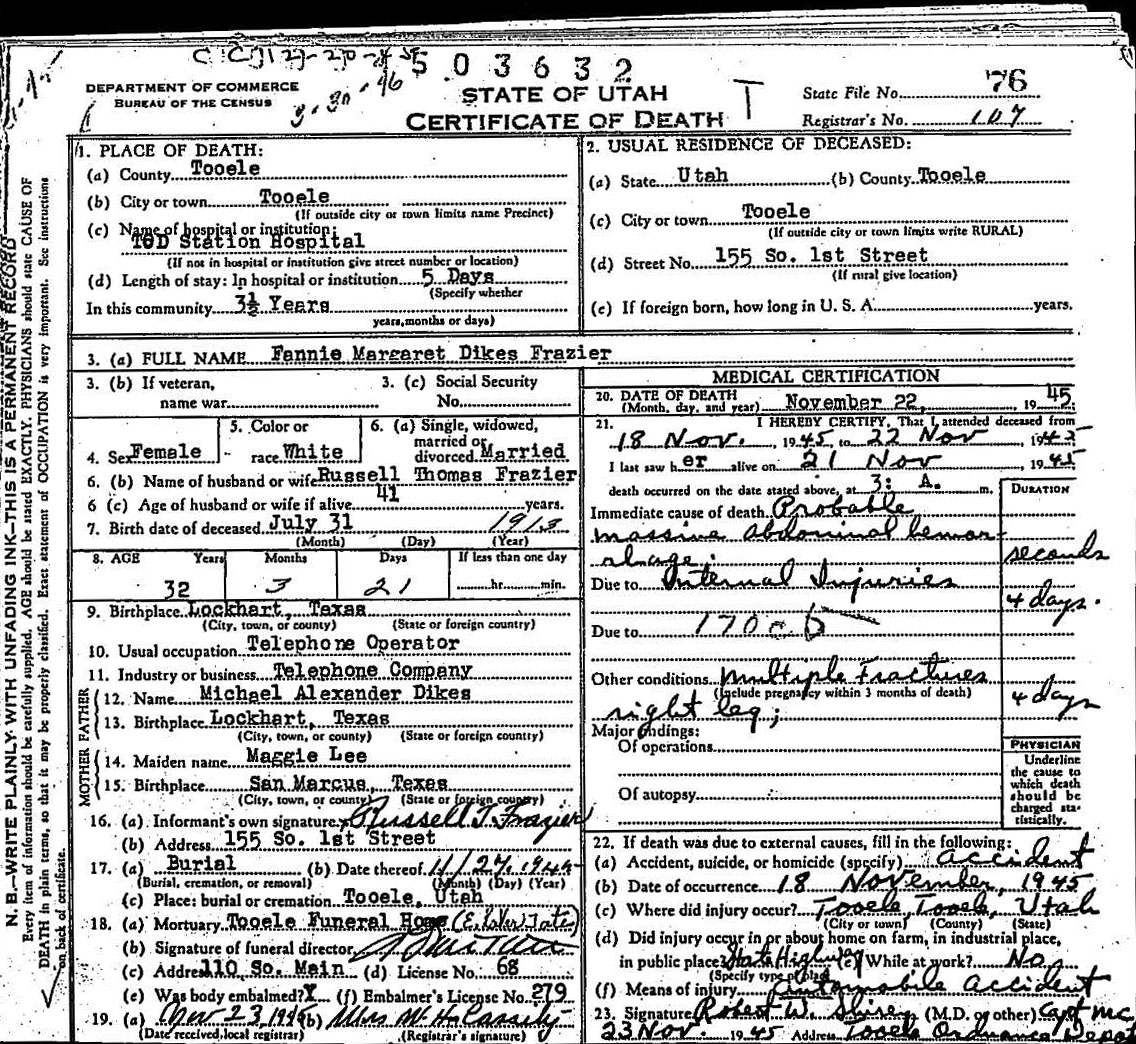 503632
DEPARTMENT OF COMMERCE
BUREAU OF THE CENSUS
STATE OF UTAH
CERTIFICATE OF DEATH
T
State File No. 76
Registrar's No. 107
N. B.—WRITE PLAINLY WITH UNFADING INK—THIS IS A PERMANENT RECORD
Every item of information should be carefully supplied. AGE should be stated EXACTLY. PHYSICIANS should state CAUSE OF
DEATH in plain terms, so that it may be properly classified. Exact statement of OCCUPATION is very important. See instructions
on back of certificate.
1. PLACE OF DEATH:
(a) County Tooele
(b) City or town Tooele
(If outside city or town limits name Precinct)
(c) Name of hospital or institution:
TOD Station Hospital
(If not in hospital or institution give street number or location)
(d) Length of stay: In hospital or institution 5 Days
(Specify whether
In this community 3½ Years
years, months or days)
2. USUAL RESIDENCE OF DECEASED:
(a) State Utah (b) County Tooele
(c) City or town Tooele
(If outside city or town limits write RURAL)
(d) Street No. 155 So. 1st Street
(If rural give location)
(e) If foreign born, how long in U. S. A. years.
3. (a) FULL NAME Fannie Margaret Dikes Frazier
3. (b) If veteran,
name war
3. (c) Social Security
No.
4. Sex Female
5. Color or
race White
6. (a) Single, widowed,
married or
divorced Married
6. (b) Name of husband or wife Russell Thomas Frazier
6 (c) Age of husband or wife if alive 41 years.
7. Birth date of deceased July 31 1913
(Month) (Day) (Year)
8. AGE Years Months Days If less than one day
32 3 21 hr. min.
9. Birthplace Lockhart, Texas
(City, town, or county) (State or foreign country)
10. Usual occupation Telephone Operator
11. Industry or business Telephone Company
FATHER
12. Name Michael Alexander Dikes
13. Birthplace Lockhart, Texas
(City, town, or county) (State or foreign country)
MOTHER
14. Maiden name Maggie Lee
15. Birthplace San Marcus, Texas
(City, town, or county) (State or foreign country)
16. (a) Informant's own signature Russell T. Frazier
(b) Address 155 So. 1st Street
17. (a) Burial (b) Date thereof 11/27,
(Burial, cremation, or removal) (Month) (Day) (Year)
(c) Place: burial or cremation Tooele, Utah
18. (a) Mortuary Tooele Funeral Home
(b) Signature of funeral director
(c) Address 110 So. Main (d) License No. 68
(e) Was body embalmed? Y (f) Embalmer's License No. 279
19. (a) Nov 23, 1945 (b) Mrs W. H. Cassity
(Date received local registrar) (Registrar's signature)
MEDICAL CERTIFICATION
20. DATE OF DEATH
(Month, day, and year) November 22, 19 45
21. I HEREBY CERTIFY, That I attended deceased from
18 Nov. , 19 45, to 22 Nov , 19 45
I last saw her alive on 21 Nov 19 45
death occurred on the date stated above, at 3: A. m.
DURATION
Immediate cause of death Probable
massive abdominal hemor-
rhage; seconds
Due to Internal Injuries
4 days.
Due to 170
Other conditions Multiple Fractures
(Include pregnancy within 3 months of death)
right leg; 4 days
Major findings:
Of operations
Of autopsy
PHYSICIAN
Underline
the cause to
which death
should be
charged sta-
tistically.
22. If death was due to external causes, fill in the following:
(a) Accident, suicide, or homicide (specify) accident
(b) Date of occurrence 18 November, 1945
(c) Where did injury occur? Tooele, Tooele, Utah
(City or town) (County) (State)
(d) Did injury occur in or about home on farm, in industrial place,
in public place? State Highway (e) While at work? No
(Specify type of place)
(f) Means of injury Automobile Accident
23. Signature Robert W. (M.D. or other) Capt MC
23 Nov. 19 45 Address Tooele Ordnance Depot